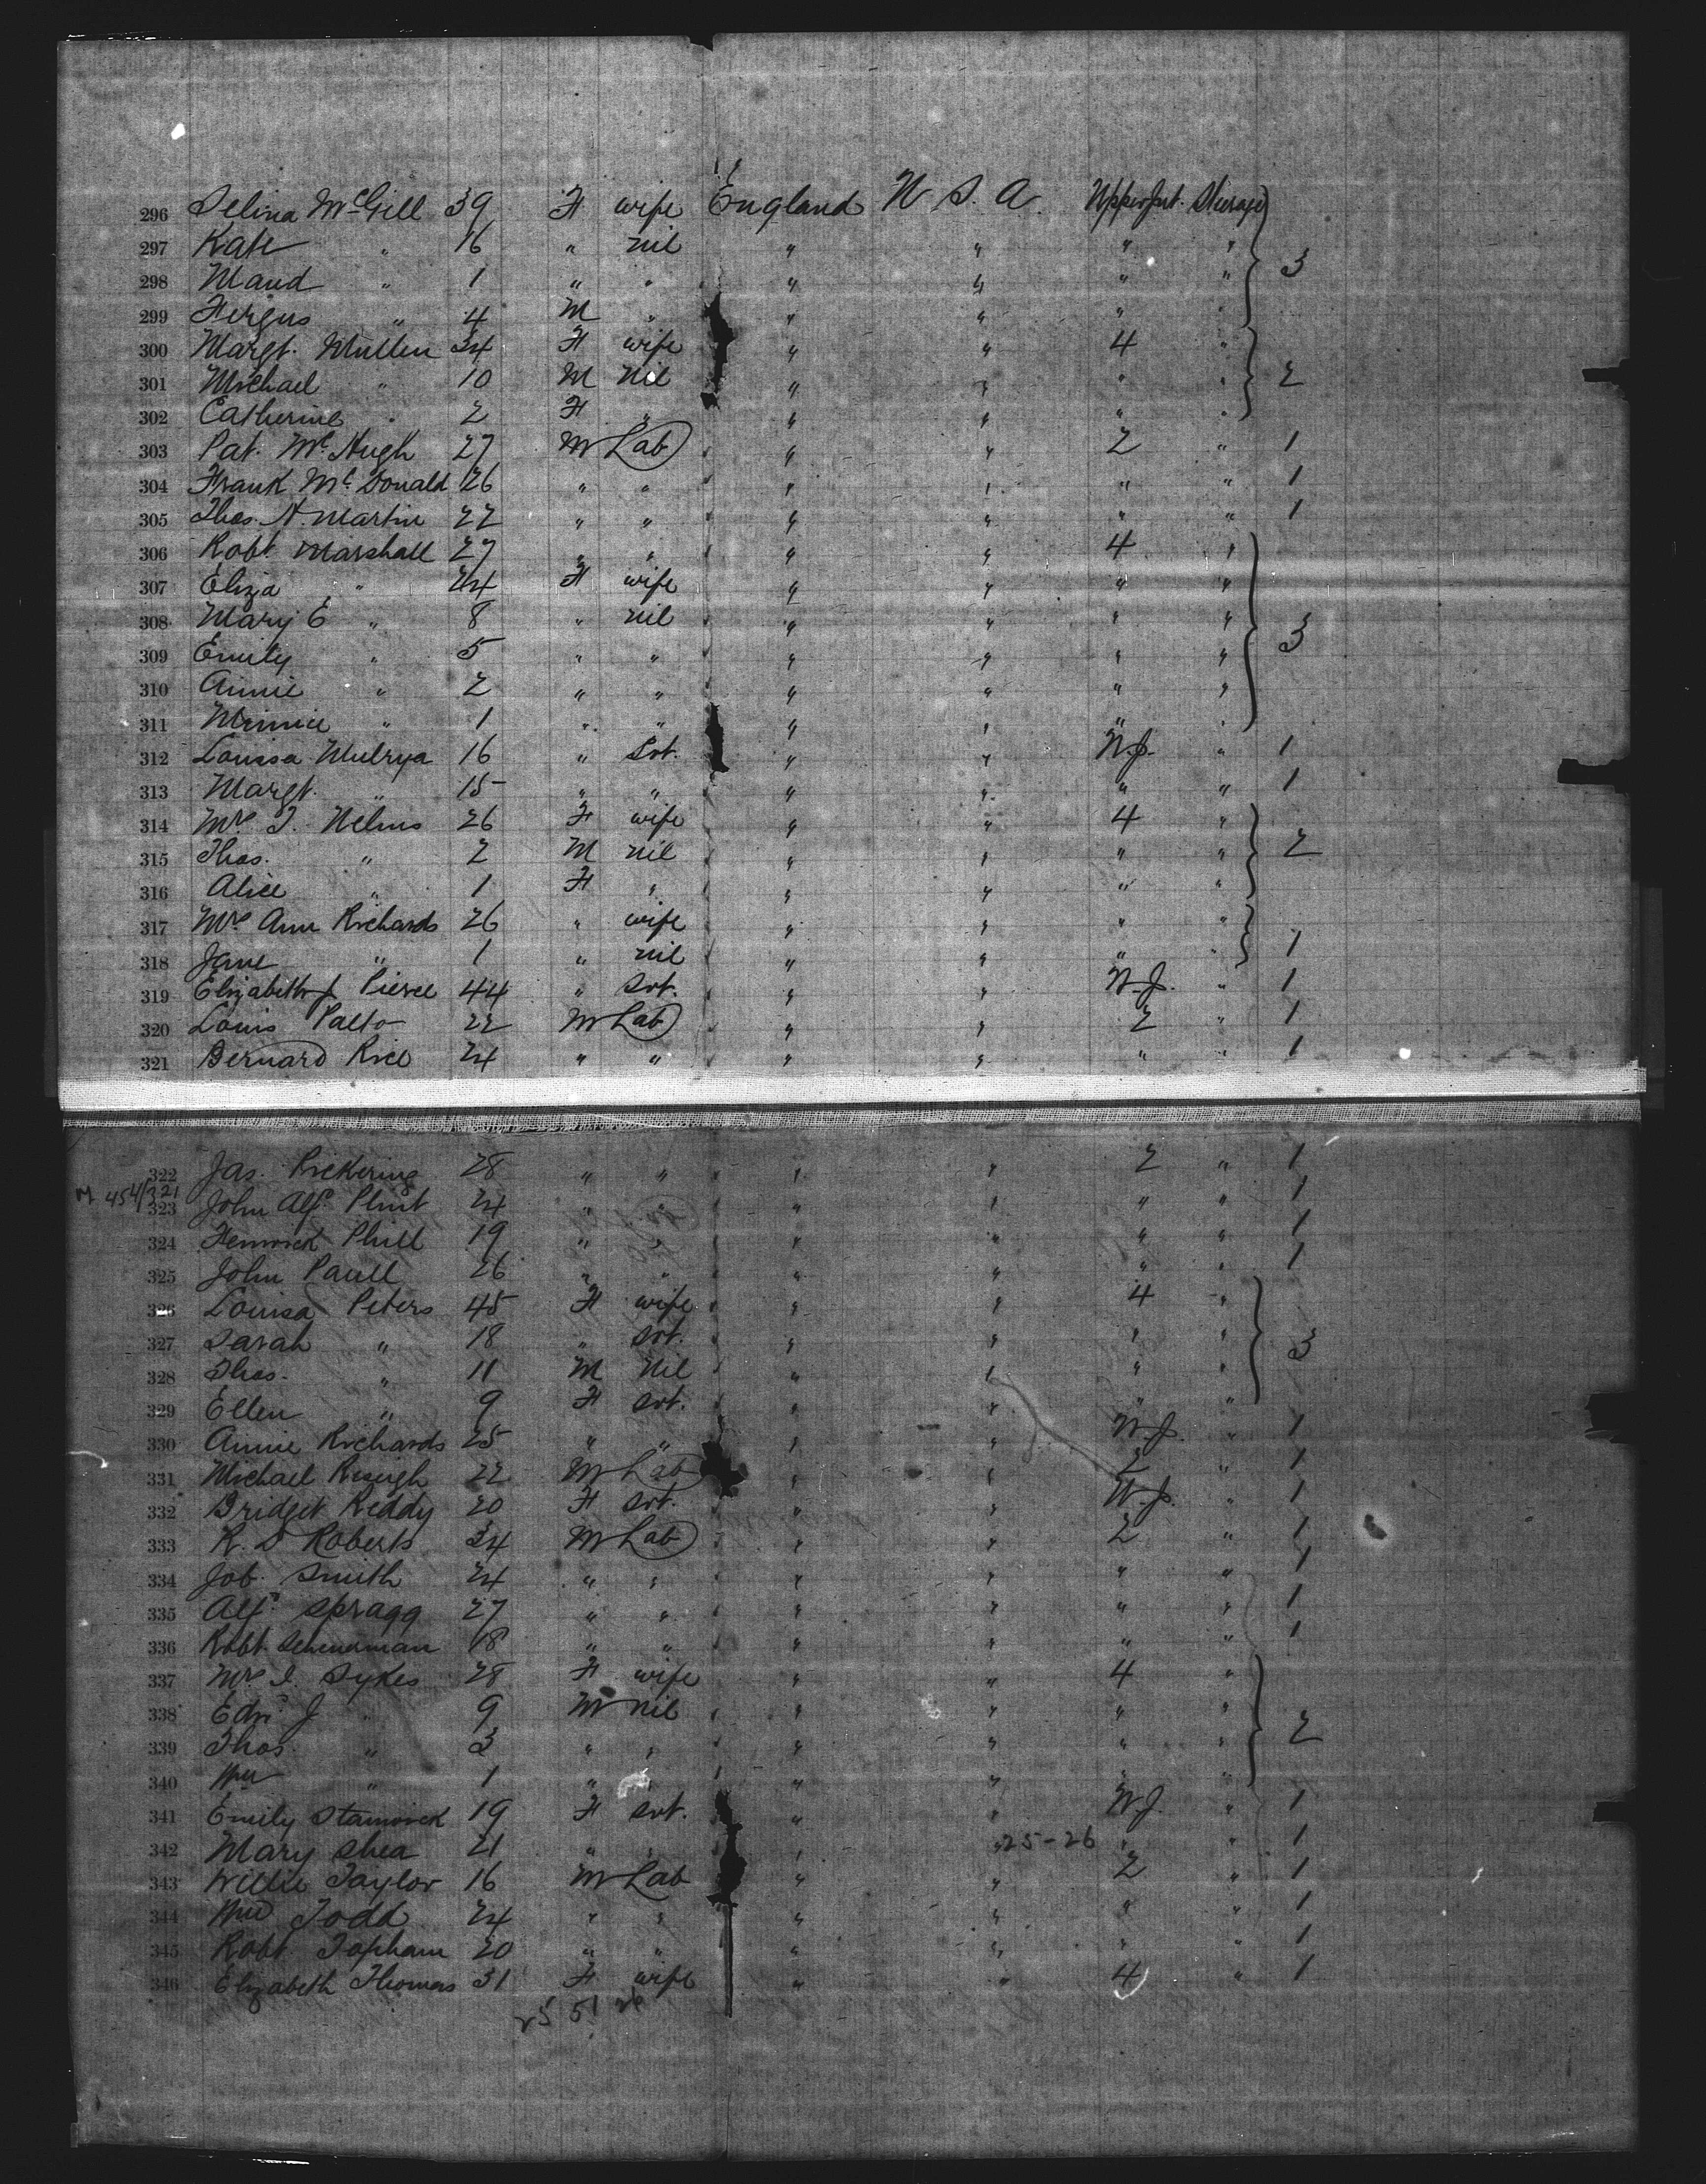 296 Selina McGill 39 F wife England U S A Upper Jnt. Steerage
297 Kate " 16 " nil " " " " 3
298 Maud " 1 " " " " " "
299 Fergus " 4 M " " " " "
300 Margt. Mullen 34 F wife " " 4 "
301 Michael " 10 M nil " " " " 2
302 Catherine " 2 F " " " " "
303 Pat. McHugh 27 M Lab " " 2 " 1
304 Frank McDonald 26 " " " " " " 1
305 Thos. A. Martin 22 " " " " " " 1
306 Robt. Marshall 27 " " " " 4 "
307 Eliza " 24 F wife " " " "
308 Mary E " 8 " nil " " " "
309 Emily " 5 " " " " " " 3
310 Annie " 2 " " " " " "
311 Minnie " 1 " " " " " "
312 Louisa Mulrya 16 " Svt. " " W.J. " 1
313 Margt. " 15 " " " " " " 1
314 Mrs. T. Nelms 26 F wife " " 4 "
315 Thos. " 2 M nil " " " " 2
316 Alice " 1 F " " " " "
317 Mrs Ann Richards 26 " wife " " " "
318 Jane " 1 " nil " " " " 1
319 Elizabeth J Pierce 44 " Svt. " " W.J. " 1
320 Louis Palto 22 M Lab " " 2 " 1
321 Bernard Rice 24 " " " " " " 1
322 Jas. Pickering 28 " " " " 2 " 1
M 454/321
323 John Alf. Plint 24 " " " " " " 1
324 Phill 19 " " " " " " 1
325 John Paull 26 " " " " " " 1
326 Louisa Peters 45 F wife " " 4 "
327 Sarah " 18 " svt. " " " " 3
328 Thos. " 11 M nil " " " "
329 Ellen " 9 F svt. " " " "
330 Annie Richards 25 " " " " W.J. " 1
331 Michael 22 M Lab " " 2 " 1
332 Bridget Reddy 20 F svt. " " W.J. " 1
333 R. D Roberts 34 M Lab " " 2 " 1
334 Job. Smith 24 " " " " " " 1
335 Alf. Spragg 27 " " " " " " 1
336 Robt. Scheuerman 18 " " " " " " 1
337 Mrs I. Sykes 28 F wife " " 4 "
338 Edw. J " 9 M nil " " " " 2
339 Thos. " 3 " " " " " "
340 Wm " 1 " " " " " "
341 Emily 19 F svt. " " W.J. " 1
342 Mary Shea 21 " " " " 25-26 " " 1
343 Willie Taylor 16 M Lab " " 2 " 1
344 Wm Todd 24 " " " " " " 1
345 Robt. Topham 20 " " " " " " 1
346 Elizabeth Thomas 31 F wife " " 4 " 1
25 51